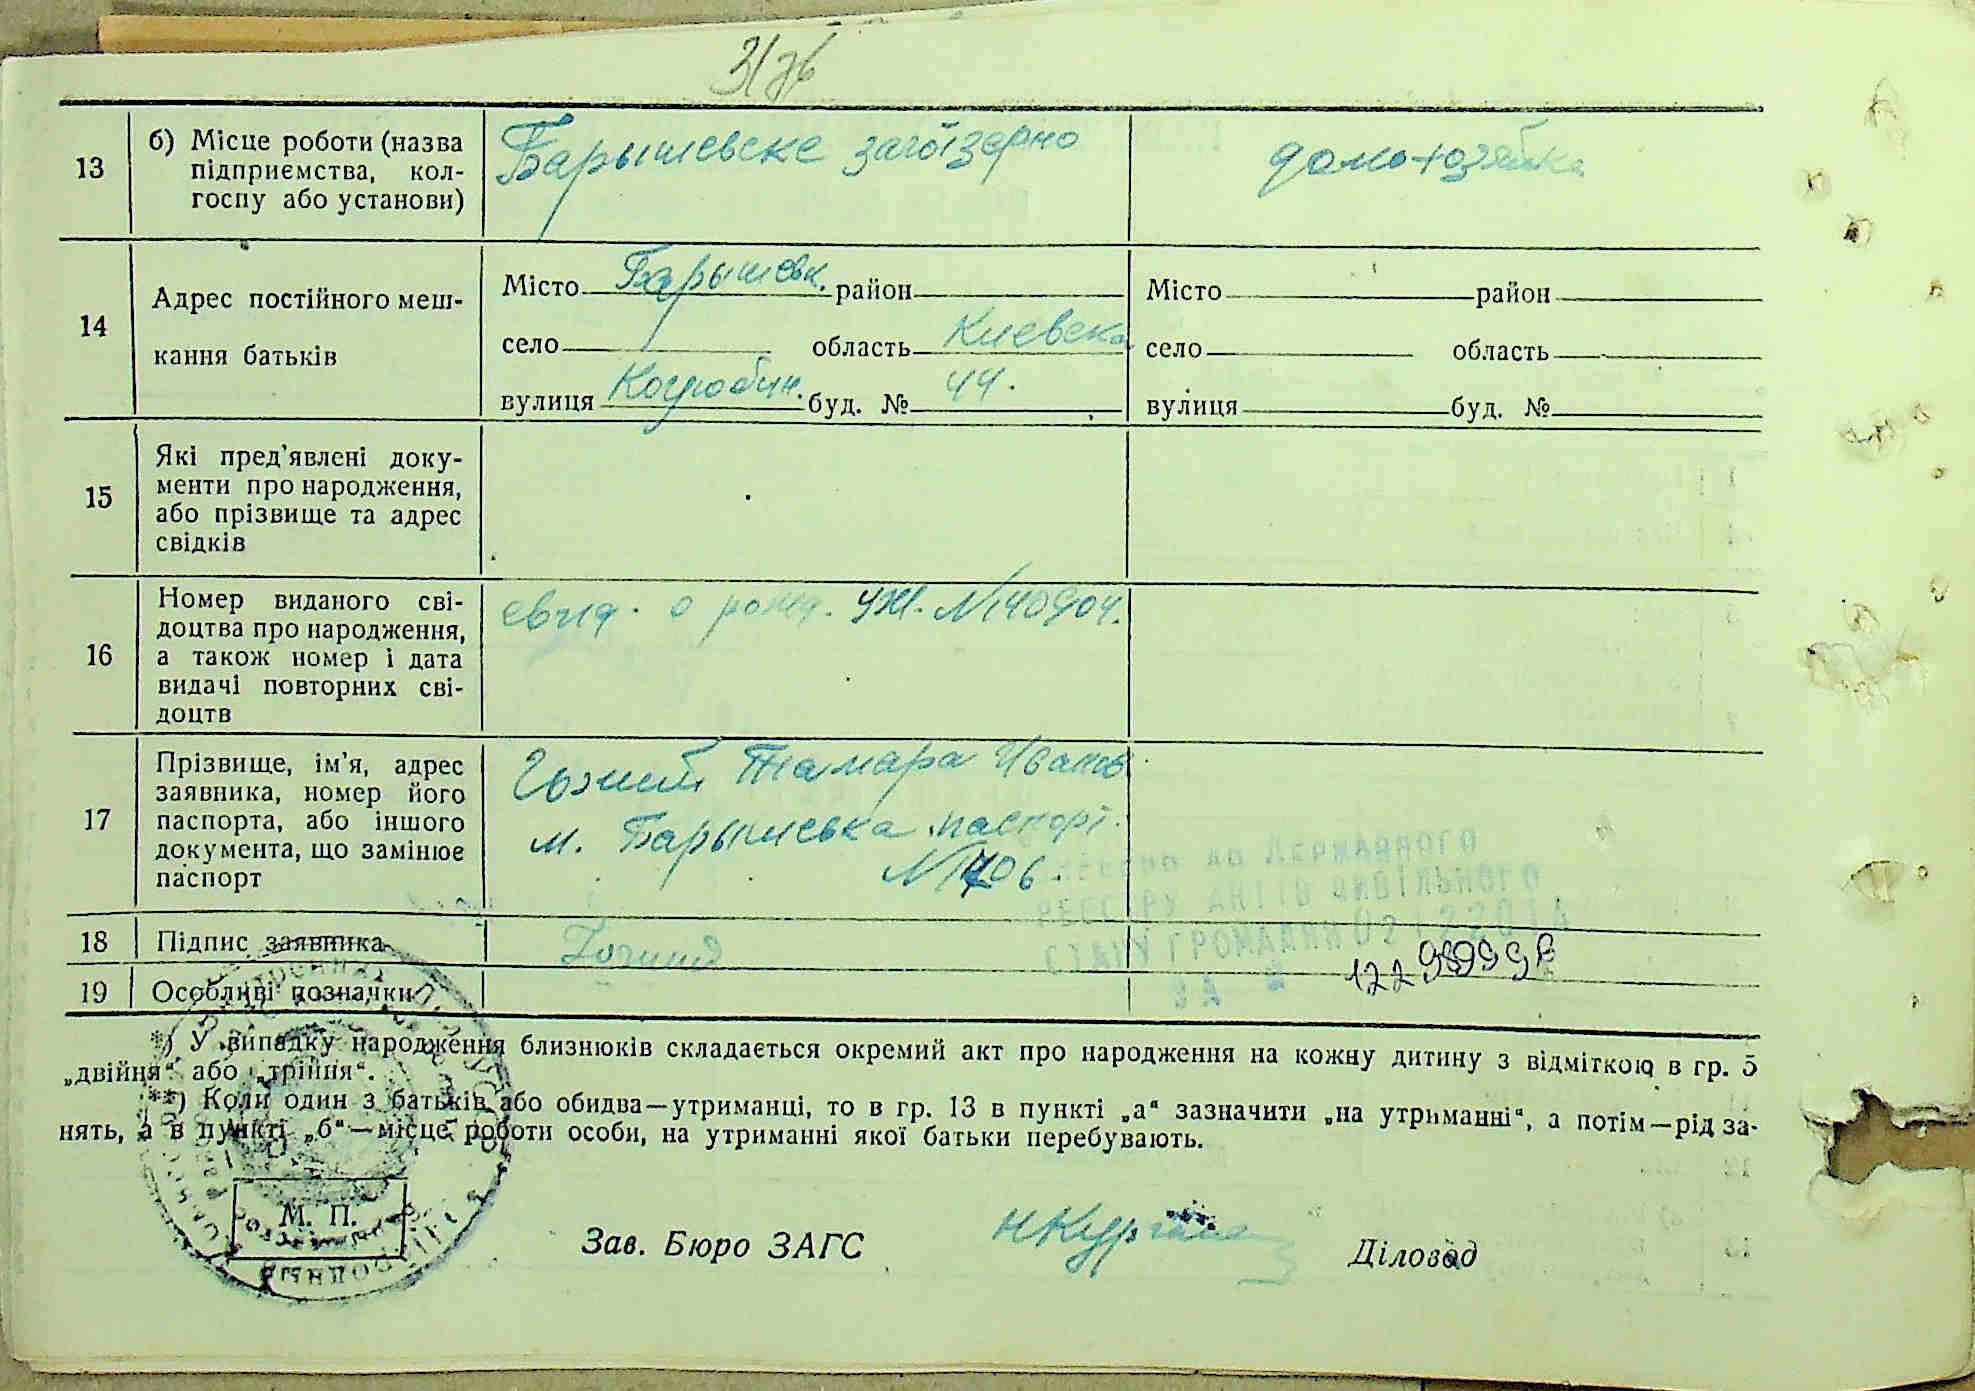 31зв
13
б) Місце роботи (назва
підприємства, кол-
госпу або установи)
Барышевске загоїзерно
домохозяйка
14
Адрес постійного меш-
кання батьків
Місто Барышевк. район
село область Киевска
вулиця буд. № 44.
Місто район
село область
вулиця буд. №
15
Які пред'явлені доку-
менти про народження,
або прізвище та адрес
свідків
16
Номер виданого сві-
доцтва про народження,
а також номер і дата
видачі повторних сві-
доцтв
свид. о рожд. УЖ. № 140904.
17
Прізвище, ім'я, адрес
заявника, номер його
паспорта, або іншого
документа, що замінює
паспорт
Тамара Иванов
м. Барышевка паспорт.
18
Підпис заявника
19
Особливі позначки
до Державного
реєстру актів цивільного
стану громадян
за №
*) У випадку народження близнюків складається окремий акт про народження на кожну дитину з відміткою в гр. 5
„двійня“ або „трійня“.
**) Коли один з батьків або обидва—утриманці, то в гр. 13 в пункті „а“ зазначити „на утриманні“, а потім—рід за-
нять, а в пункті „б“—місце роботи особи, на утриманні якої батьки перебувають.
М. П.
Зав. Бюро ЗАГС
Діловод